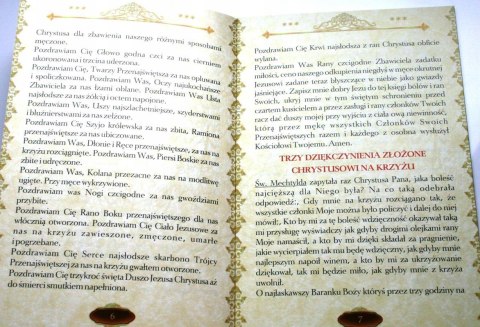 Chrystusa dla zbawienia naszego różnymi sposobami
męczone.
Pozdrawiam Cię Głowo godna czci za nas cierniem
ukoronowana i trzcina uderzona.
Pozdrawiam Cię, Twarzy Przenajświętsza za nas opluwana
i spoliczkowana. Pozdrawiam Was, Oczy najukochańsze
Zbawiciela za nas łzami oblane. Pozdrawiam Was Usta
najsłodsze za nas żółcią i octem napojone.
Pozdrawiam Was, Uszy najszlachetniejsze, szyderstwami
i bluźnierstwami za nas zelżone.
Pozdrawiam Cię Szyjo królewska za nas zbita, Ramiona
przenajświętsze za nas ubiczowane.
Pozdrawiam Was, Dłonie i Ręce przenajświętsze, za nas na
krzyżu rozciągnięte. Pozdrawiam Was, Piersi Boskie za nas
zbite i udręczone.
Pozdrawiam Was, Kolana przezacne za nas na modlitwę
ugięte. Przy męce wykrzywione.
Pozdrawiam was Nogi czcigodne za nas gwoździami
przybite.
Pozdrawiam Cię Rano Boku przenajświętszego dla nas
włócznią otworzona. Pozdrawiam Cię Ciało Jezusowe za
nas na krzyżu zawieszone, zmęczone, umarłe
i pogrzebane.
Pozdrawiam Cię Serce najsłodsze skarbono Trójcy
Przenajświętszej za nas na krzyżu gwałtem otworzone.
Pozdrawiam Cię trzykroć święta Duszo Jezusa Chrystusa aż
do śmierci smutkiem napełniona.
6
Pozdrawiam Cię Krwi najsłodsza z ran Chrystusa obficie
wylana.
Pozdrawiam Was Rany czcigodne Zbawiciela zadatku
miłości, ceno naszego odkupienia niegdyś w męce okrutnej
Jezusowi zadane teraz błyszczące w niebie jako gwiazdy
jaśniejące. Zapisz mnie dobry Jezu do tej księgi bólów i ran
Swoich, ukryj mnie w tym świętym schronieniu przed
czartem kusicielem a przez zasługi i rany członków Twoich
racz dać duszy mojej po wyjściu z ciała ową niewinność,
która przez mękę wszystkich Członków Swoich
Przenajświętszych razem i każdego z osobna wysłużył
Kościołowi Twojemu. Amen.
TRZY DZIĘKCZYNIENIA ZŁOŻONE
CHRYSTUSOWI NA KRZYŻU
Św. Mechtylda zapytała raz Chrystusa Pana, jaka boleść
najcięższą dla Niego była? Na co taką odebrała
odpowiedź:, Gdy mnie na krzyżu rozciągano tak, że
wszystkie członki Moje można było policzyć i dalej do niej
mówił:, Kto by mi za tę boleść wdzięczność okazywał taką
mi przysługę wyświadczy jak gdyby drogimi olejkami rany
Moje namaścił, a kto by mi dzięki składał za pragnienie,
jakie wycierpiałem tak mu będę wdzięczny, jak gdyby mnie
najlepszym napoił winem, a kto by mi za ukrzyżowanie
dziękował, tak mi będzie miło, jak gdyby mnie z krzyża
uwolnił.
O najłaskawszy Baranku Boży któryś przez trzy godziny na
7